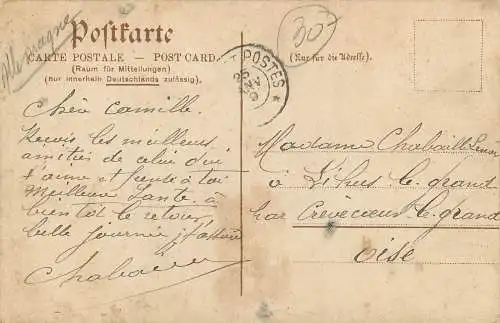 Allemagne
Postkarte
CARTE POSTALE — POST CARD
(Raum für Mitteilungen)
(nur innerhalb Deutschlands zulässig.)
307
(Nur für die Adresse.)
POSTES
Chère Camille.
Reçois les meilleurs
amitiés de celui qui
t'aime et pense à toi
Meilleur Santé à
bientôt le retour
belle journée
Chabail
Madame Chabaille
à Lihus le grand
par Crèvecoeur le grand
Oise